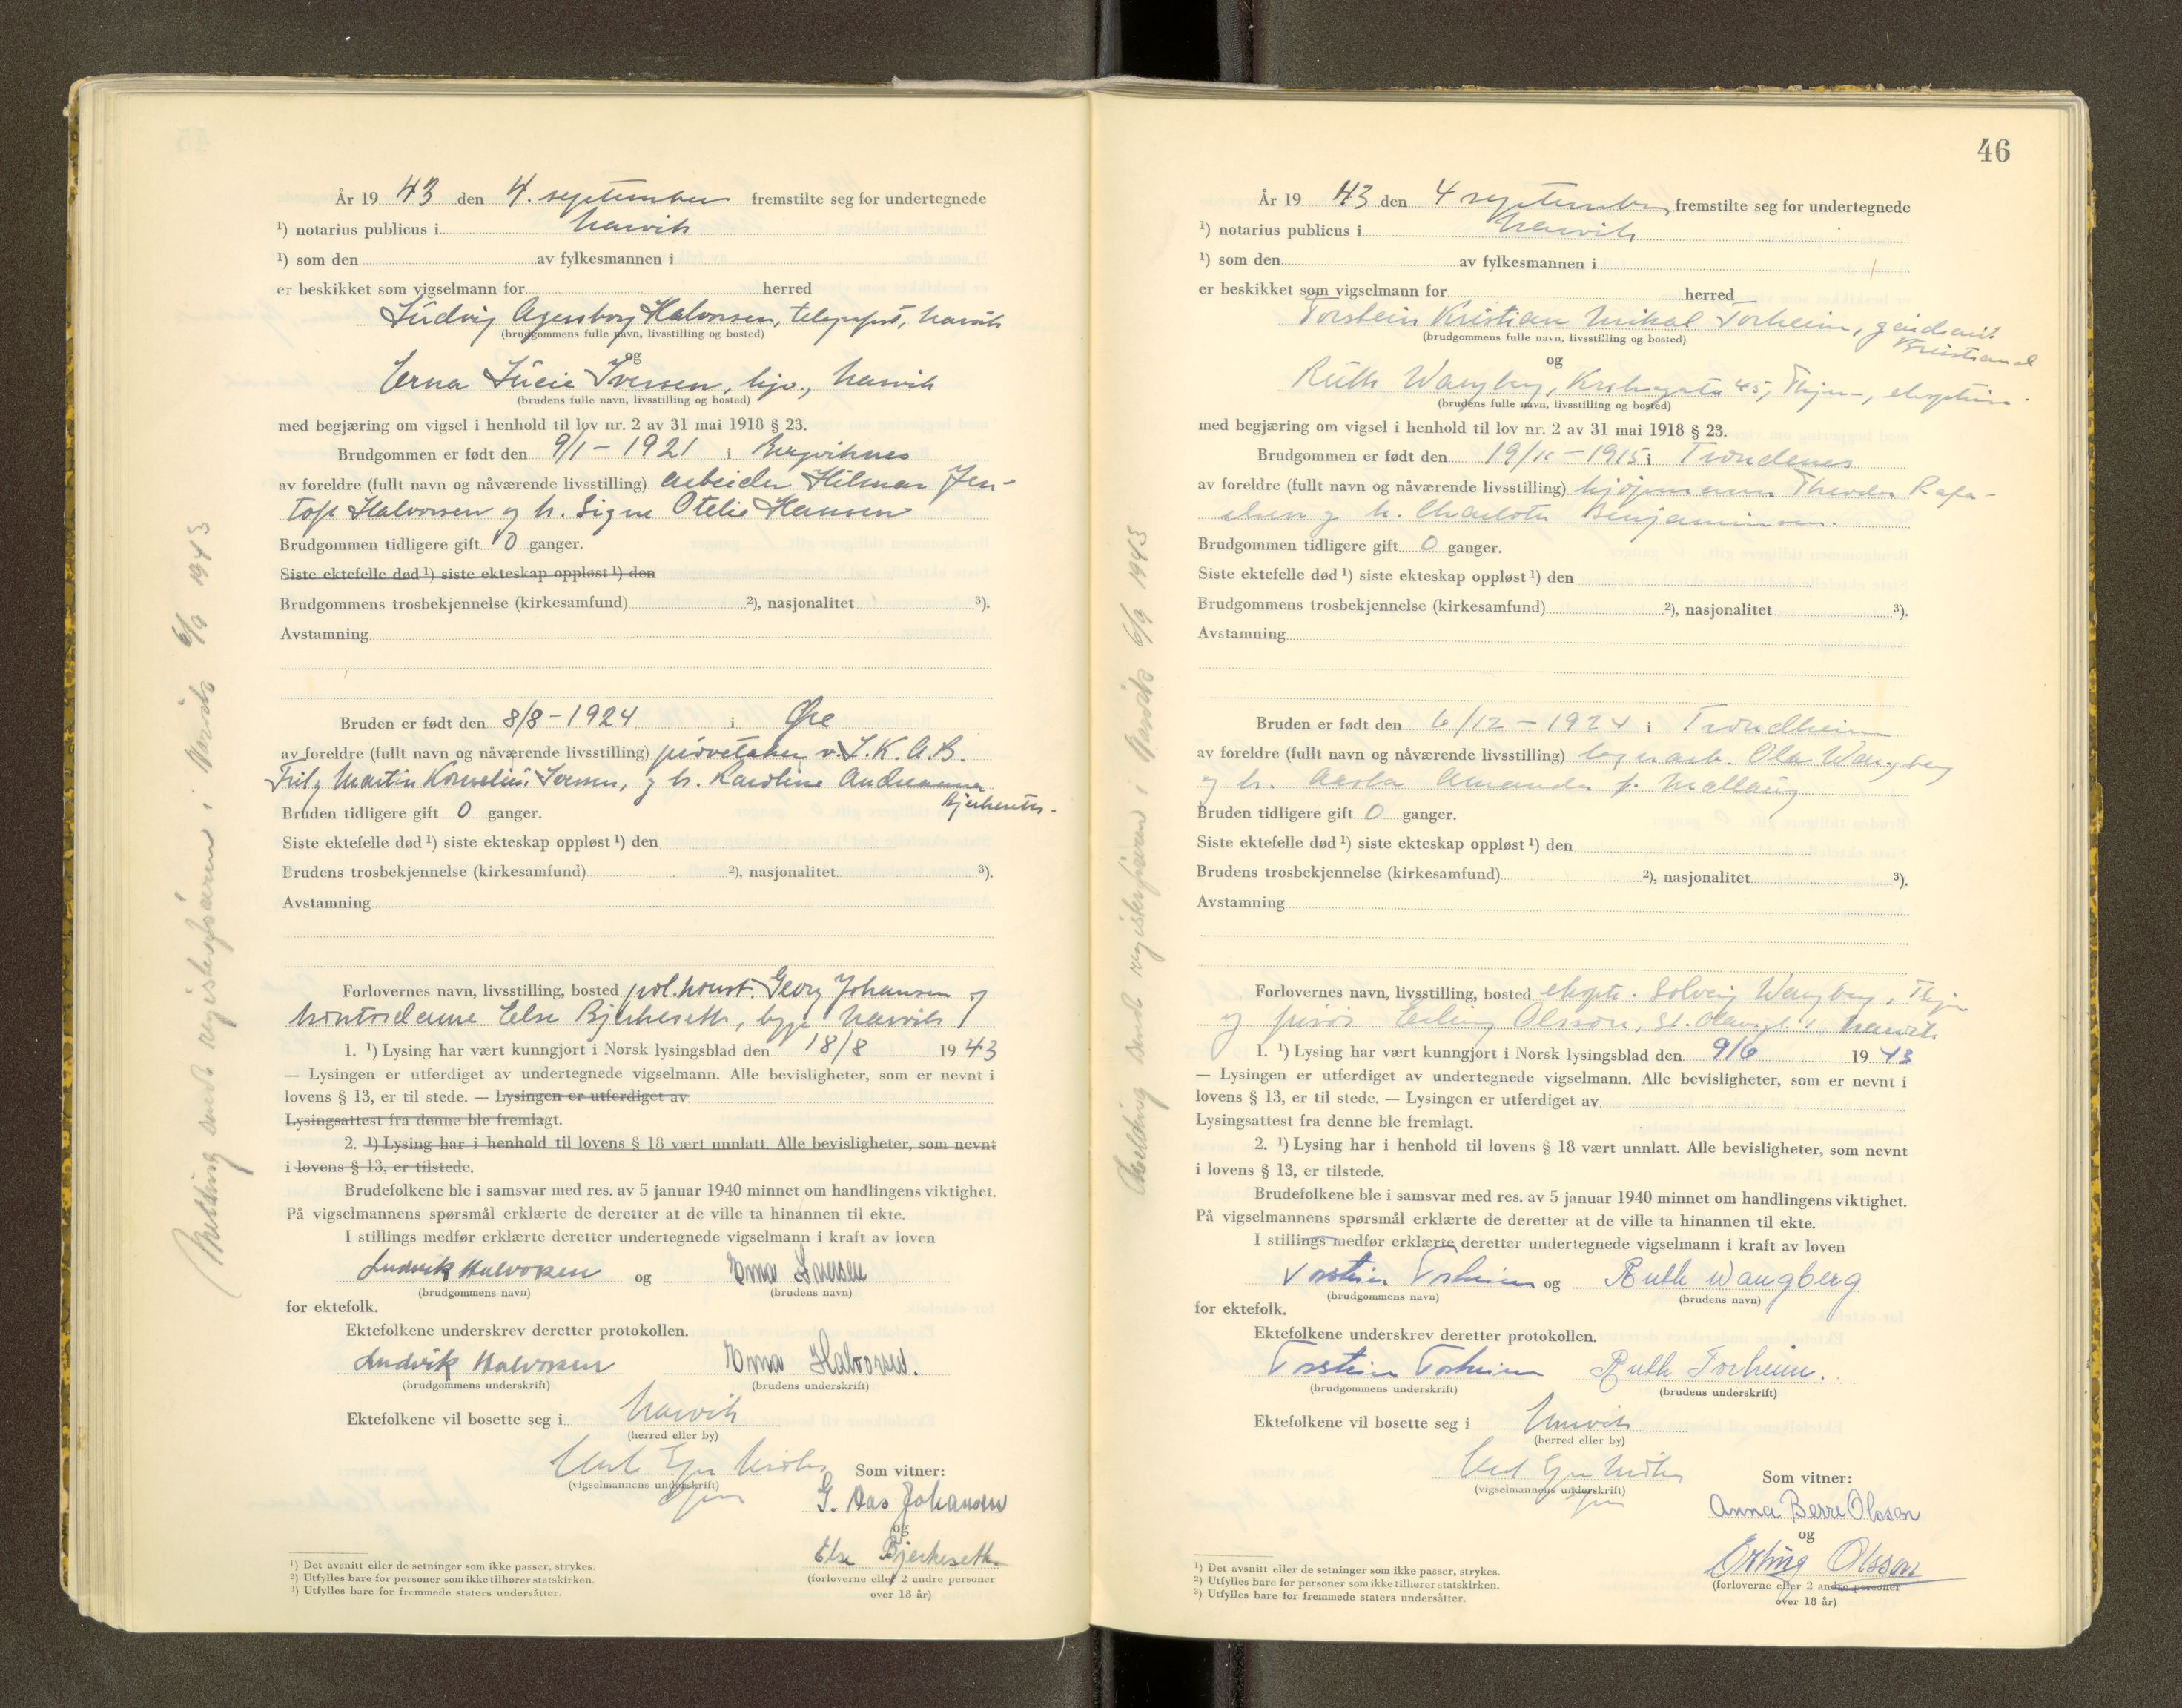 År 19 43 den 4. september fremstilte seg for undertegnede
¹) notarius publicus i Narvik
¹) som den av fylkesmannen i
er beskikket som vigselmann for herred
Ludvig Agersborg Halvorsen, telegrafist, Narvik
(brudgommens fulle navn, livsstilling og bosted)
og
Erna Lucie Iversen, hjv., Narvik
(brudens fulle navn, livsstilling og bosted)
med begjæring om vigsel i henhold til lov nr. 2 av 31 mai 1918 § 23.
Brudgommen er født den 9/1 - 1921 i Bergviknes
av foreldre (fullt navn og nåværende livsstilling) arbeider Hilmar Jen-
toft Halvorsen og h. Signe Otelie Hansen
Brudgommen tidligere gift 0 ganger.
Siste ektefelle død ¹) siste ekteskap oppløst ¹) den
Brudgommens trosbekjennelse (kirkesamfund) ²), nasjonalitet ³).
Avstamning
Bruden er født den 8/8 - 1924 i Øre
av foreldre (fullt navn og nåværende livsstilling) prøvetaker v. L.K.A.B.
Fritz Martin Kornelius Iversen, og h. Karoline Andreanna
Bjerkeseth.
Bruden tidligere gift 0 ganger.
Siste ektefelle død ¹) siste ekteskap oppløst ¹) den
Brudens trosbekjennelse (kirkesamfund) ²), nasjonalitet ³).
Avstamning
Forlovernes navn, livsstilling, bosted pol.konst. Georg Johansen og
kontordame Else Bjerkeseth, begge Narvik
1. ¹) Lysing har vært kunngjort i Norsk lysingsblad den 18/8 19 43
— Lysingen er utferdiget av undertegnede vigselmann. Alle bevisligheter, som er nevnt i
lovens § 13, er til stede. — Lysingen er utferdiget av
Lysingsattest fra denne ble fremlagt.
2. ¹) Lysing har i henhold til lovens § 18 vært unnlatt. Alle bevisligheter, som nevnt
i lovens § 13, er tilstede.
Brudefolkene ble i samsvar med res. av 5 januar 1940 minnet om handlingens viktighet.
På vigselmannens spørsmål erklærte de deretter at de ville ta hinannen til ekte.
I stillings medfør erklærte deretter undertegnede vigselmann i kraft av loven
Ludvik Halvorsen og Erna Iversen
(brudgommens navn) (brudens navn)
for ektefolk.
Ektefolkene underskrev deretter protokollen.
Ludvik Halvorsen Erna Halvorsen.
(brudgommens underskrift) (brudens underskrift)
Ektefolkene vil bosette seg i Narvik
(herred eller by)
Som vitner:
(vigselmannens underskrift)
G. Aas Johansen
og
Else Bjerkeseth
(forloverne eller 2 andre personer
over 18 år)
¹) Det avsnitt eller de setninger som ikke passer, strykes.
²) Utfylles bare for personer som ikke tilhører statskirken.
³) Utfylles bare for fremmede staters undersåtter.
Melding sendt registerføreren i Narvik 6/9 1943
46
År 19 43 den 4 september fremstilte seg for undertegnede
¹) notarius publicus i Narvik
¹) som den av fylkesmannen i
er beskikket som vigselmann for herred
Torstein Kristian Mikal Torheim,
(brudgommens fulle navn, livsstilling og bosted)
og
Ruth Wangberg, 45,
(brudens fulle navn, livsstilling og bosted)
med begjæring om vigsel i henhold til lov nr. 2 av 31 mai 1918 § 23.
Brudgommen er født den 19/11 - 1915 i Trondenes
av foreldre (fullt navn og nåværende livsstilling) Theodor Rafa-
elsen og h. Charlotte Benjaminsen.
Brudgommen tidligere gift 0 ganger.
Siste ektefelle død ¹) siste ekteskap oppløst ¹) den
Brudgommens trosbekjennelse (kirkesamfund) ²), nasjonalitet ³).
Avstamning
Bruden er født den 6/12 - 1924 i Trondheim
av foreldre (fullt navn og nåværende livsstilling) Ola Wangberg
og h. Amanda f.
Bruden tidligere gift 0 ganger.
Siste ektefelle død ¹) siste ekteskap oppløst ¹) den
Brudens trosbekjennelse (kirkesamfund) ²), nasjonalitet ³).
Avstamning
Forlovernes navn, livsstilling, bosted Solveig Wangberg,
og frisør Erling Olsson, Narvik
1. ¹) Lysing har vært kunngjort i Norsk lysingsblad den 9/6 19 43
— Lysingen er utferdiget av undertegnede vigselmann. Alle bevisligheter, som er nevnt i
lovens § 13, er til stede. — Lysingen er utferdiget av
Lysingsattest fra denne ble fremlagt.
2. ¹) Lysing har i henhold til lovens § 18 vært unnlatt. Alle bevisligheter, som nevnt
i lovens § 13, er tilstede.
Brudefolkene ble i samsvar med res. av 5 januar 1940 minnet om handlingens viktighet.
På vigselmannens spørsmål erklærte de deretter at de ville ta hinannen til ekte.
I stillings medfør erklærte deretter undertegnede vigselmann i kraft av loven
Torstein Torheim og Ruth Wangberg
(brudgommens navn) (brudens navn)
for ektefolk.
Ektefolkene underskrev deretter protokollen.
Torstein Torheim Ruth Torheim.
(brudgommens underskrift) (brudens underskrift)
Ektefolkene vil bosette seg i Narvik
(herred eller by)
Som vitner:
(vigselmannens underskrift)
Anna Berre Olsson
og
Erling Olsson
(forloverne eller 2 andre personer
over 18 år)
¹) Det avsnitt eller de setninger som ikke passer, strykes.
²) Utfylles bare for personer som ikke tilhører statskirken.
³) Utfylles bare for fremmede staters undersåtter.
Melding sendt registerføreren i Narvik 6/9 1943